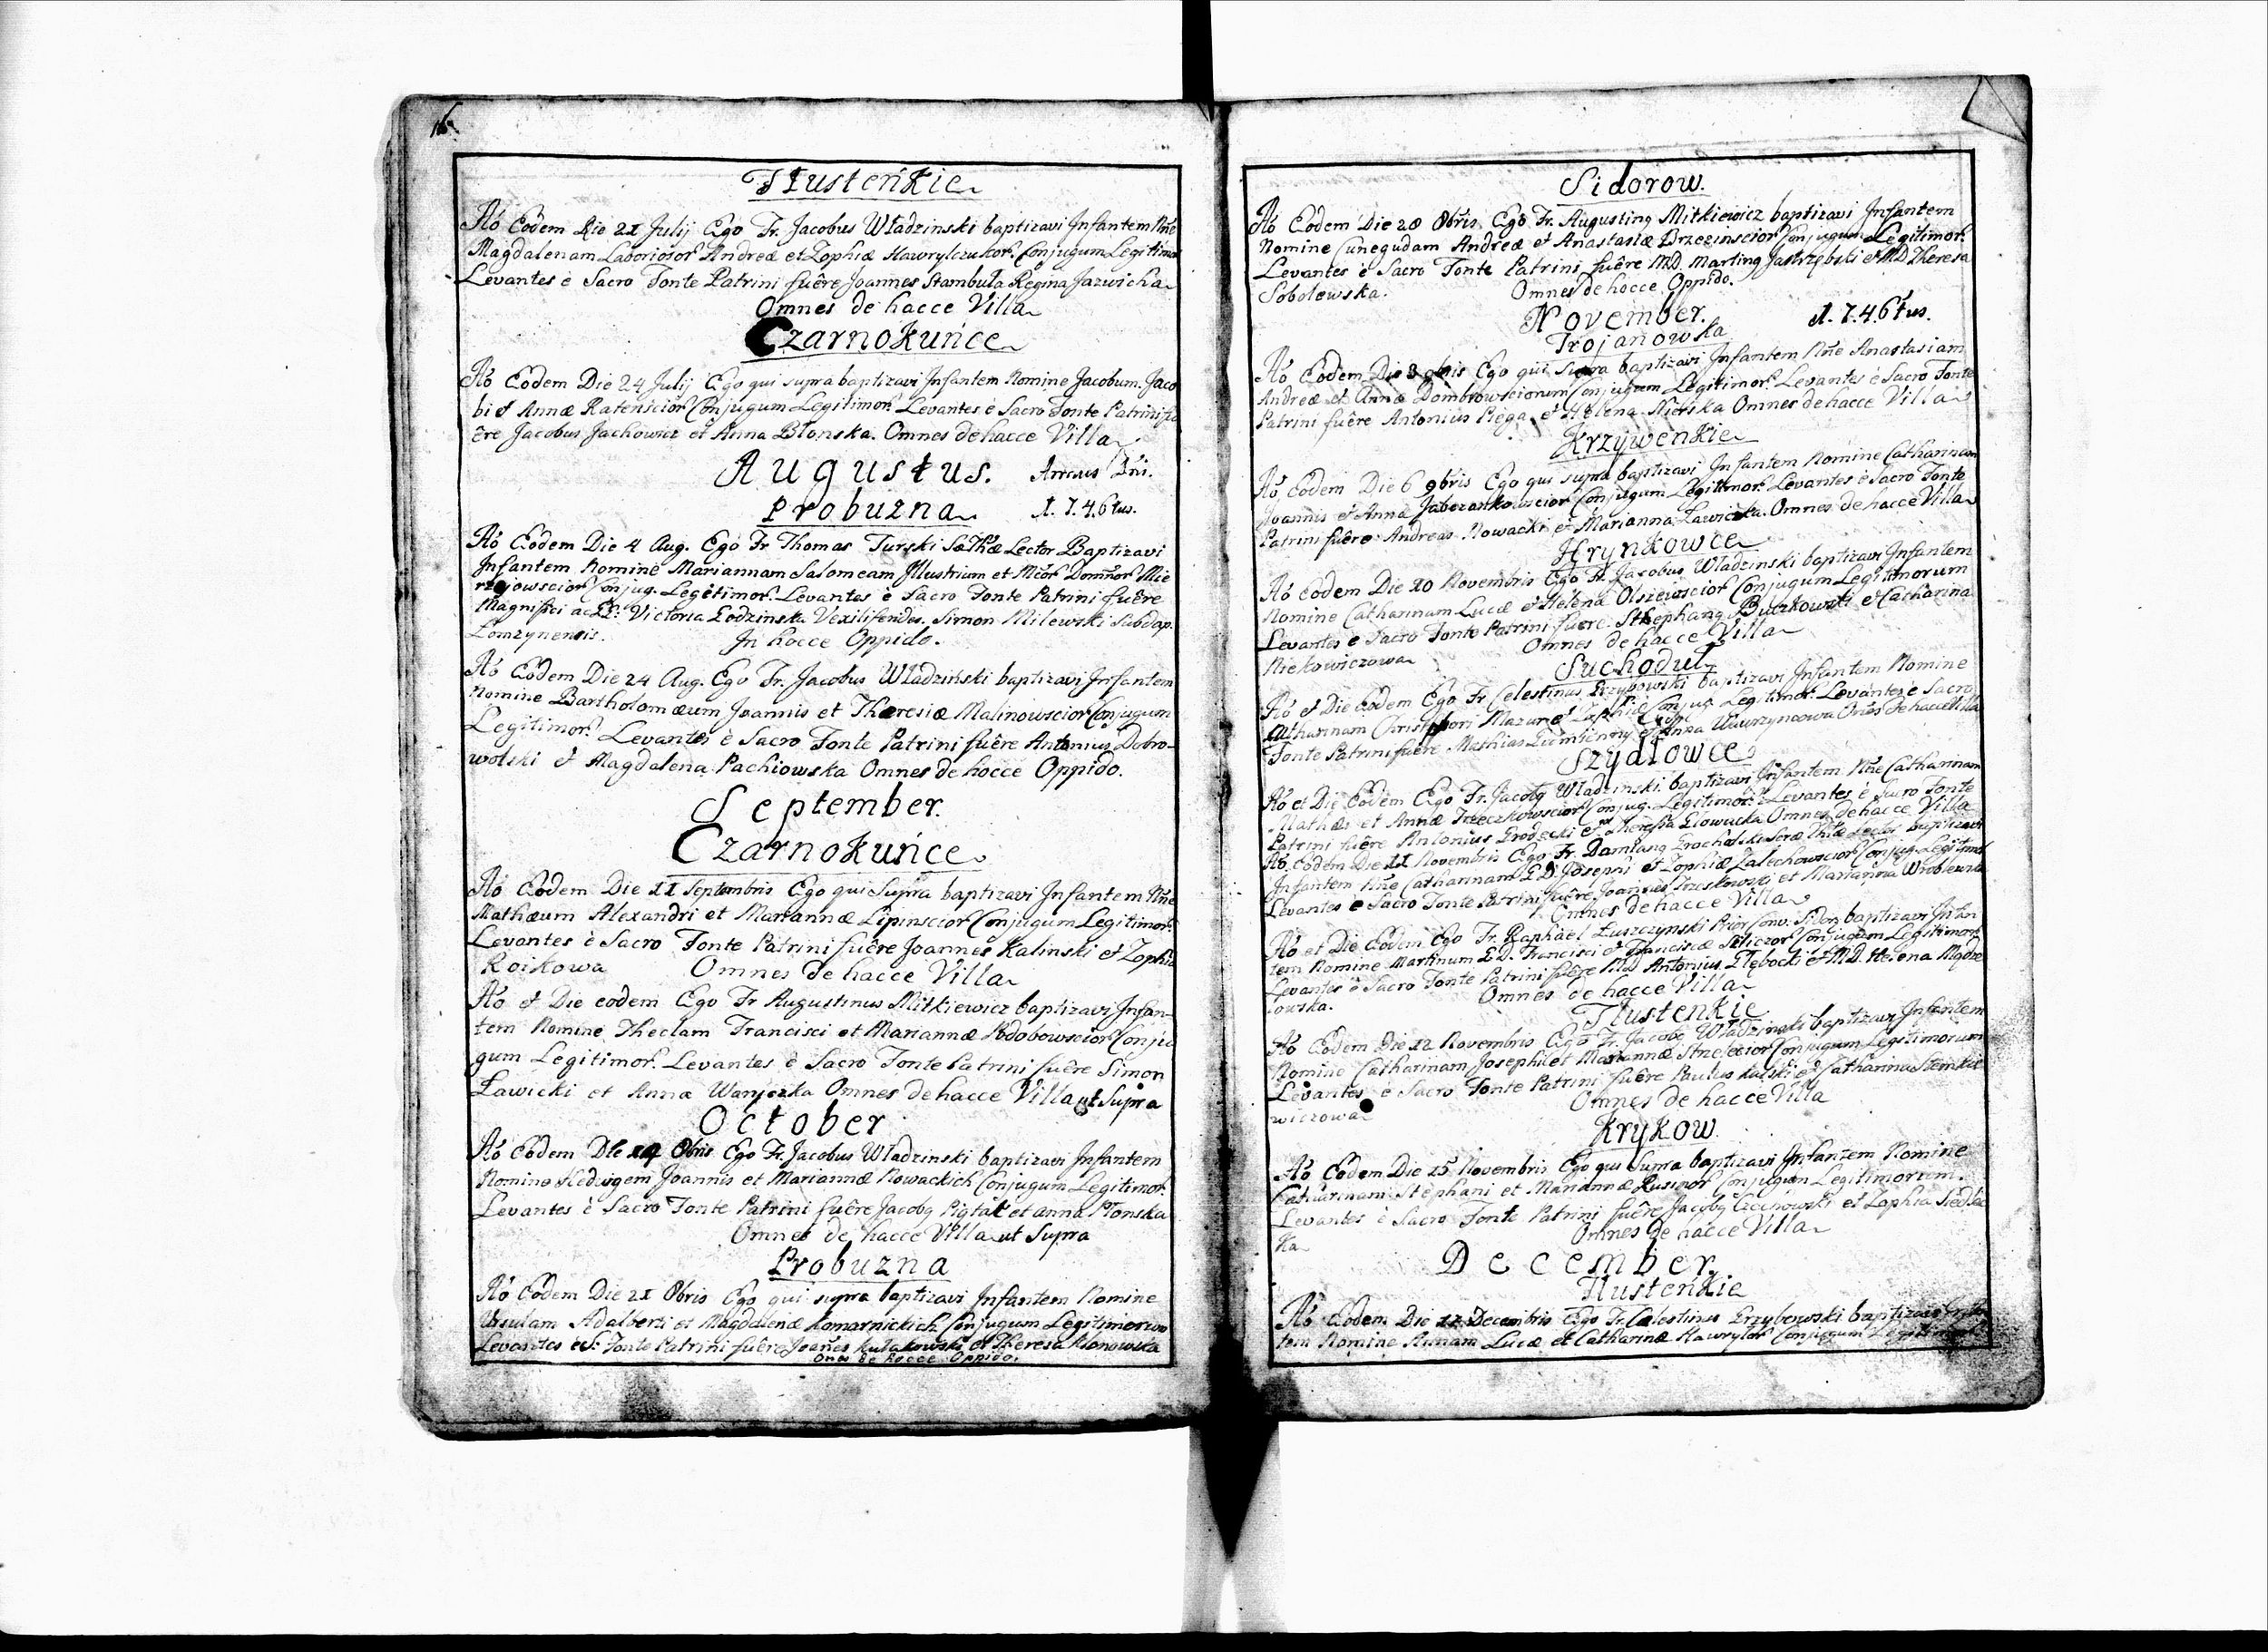 16.
Tłusteńkie
Aō Eodem Die 21 Julij Ego Fr. Jacobus Władzinski baptizavi Infantem Nñe
Magdalenam Laboriosor Andreæ et Zophiæ Hawrylczukor. Conjugum Legitimor
Levantes è Sacro Fonte Patrini fuêre Joannes Stambuła Regina Jazwicha
Omnes de hacce Villa
Czarnokuńce
Aō Eodem Die 24 Julij Ego qui supra baptizavi Infantem Nomine Jacobum. Jaco
bi et Annæ Ratenscior Conjugum Legitimor. Levantes è Sacro Fonte Patrini fu
êre Jacobus Jachowicz et Anna Błonska. Omnes de hacce Villa
Augustus. Annus Dñi.
Probuzna 1.7.4.6tus.
Aō Eodem Die 4 Aug. Ego Fr Thomas Turski Sæ Thæ Lector Baptizavi
Infantem Nomine Mariannam Salomeam Illustrium et Mcor Domñor Mie
rzejowscior Conjug. Legitimor. Levantes è Sacro Fonte Patrini fuêre
Magnifici ac Victoria Łodzinska Vexiliferides. Simon Milewski Subdap.
Łomzynensis. In hocce Oppido.
Aō Eodem Die 24 Aug. Ego Fr. Jacobus Władziński baptizavi Infantem
Nomine Bartholomæum Joannis et Theresiæ Malinowscior Conjugum
Legitimor. Levantes è Sacro Fonte Patrini fuêre Antonius Dobro-
wolski et Magdalena Pachiowska Omnes de hocce Oppido.
September.
Czarnokuńce
Aō Eodem Die 11 Septembris Ego qui Supra baptizavi Infantem Nñe
Mathæum Alexandri et Mariannæ Lipinscior Conjugum Legitimor.
Levantes è Sacro Fonte Patrini fuêre Joannes Kalinski et Zophia
Roikowa Omnes de hacce Villa
Aō et Die eodem Ego Fr Augustinus Mitkiewicz baptizavi Infan-
tem Nomine Theclam Francisci et Mariannæ Podobowscior Conju
gum Legitimor. Levantes è Sacro Fonte Patrini fuêre Simon
Ławicki et Anna Wanjczka Omnes de hacce Villa ut Supra
October
Aō Eodem Die 14 8bris Ego Fr. Jacobus Władzinski baptizavi Infantem
Nomine Hedvigem Joannis et Mariannæ Nowackich Conjugum Legitimor.
Levantes è Sacro Fonte Patrini fuêre Jacobg Piątak et anna Płonska
Omnes de hacce Villa ut Supra
Probuzna
Aō Eodem Die 21 8bris Ego qui supra baptizavi Infantem Nomine
Ursulam Adalberti et Magdalenæ Komarnickich Conjugum Legitimorum
Levantes è S. Fonte Patrini fuêre Joañes Kułakowski et Theresa Klonowska
Oñes de hocce Oppido.
Sidorow.
Aō Eodem Die 28 8bris Ego Fr. Augusting Mitkiewicz baptizavi Infantem
Nomine Cunegudam Andreæ et Anastasiæ Brzezinscior Conjugum Legitimor.
Levantes è Sacro Fonte Patrini fuêre MD. Marting Jastrzębski et MD Theresa
Sobolewska. Omnes de hocce Oppido.
November. 1.7.4.6tus.
Trojanowka
Aō Eodem Die 3 9bris Ego qui Supra baptizavi Infantem Nñe Anastasiam
Andreæ et Annæ Dombrowscionum Conjugum Legitimor. Levantes è Sacro Fonte
Patrini fuêre Antonius Piega et Helena Niciska Omnes de hacce Villa
Krzywenkie
Aō Eodem Die 6 9bris Ego qui supra baptizavi Infantem Nomine Catharinam
Joannis et Anna Jabczankowscior Conjugum Legitimor. Levantes è Sacro Fonte
Patrini fuêre Andreas Nowacki et Marianna Ławicka. Omnes de hacce Villa
Hrynkowce
Aō Eodem Die 10 Novembris Ego Fr. Jacobus Władzinski baptizavi Infantem
Nomine Catharinam Lucæ et Helena Olszewscior Conjugum Legitimorum
Levantes è Sacro Fonte Patrini fuere Stephang Buczkowski et Catharina
Niekowiczowa Omnes de hacce Villa
Suchoduł
Aō et Die Eodem Ego Fr Celestinus Przybowski baptizavi Infantem Nomine
Catharinam Christophori Mazur et Zophiæ Conjug Legitimor. Levantes è Sacro
Fonte Patrini fuêre Mathias et Anna Wawrzyncowa Oñes de hacce Villa
Szydłowce
Aō et Die Eodem Ego Fr. Jacobg Władzinski baptizavi Infantem Nñe Catharinam
Mathæi et Annæ Trzeczkowscior Conjug. Legitimor. Levantes è Sacro Fonte
Patrini fuêre Antonius Grodecki et Theresia Głowacka Omnes de hacce Villa
Aō Eodem Die 11 Novembris Ego Fr. Damiang Grocholski Sæ Thæ Lector baptizavi
Infantem Nñe Catharinam G.D. Josephi et Zophiæ Zalechowscior Conjug. Legitimor
Levantes è Sacro Fonte Patrini fuêre Joannes Treskowski et Marianna Wroblewna
Omnes de hacce Villa
Aō et Die Eodem Ego Fr. Raphaël Łuszczynski Prior Conv. Sidor. baptizavi Infan
tem Nomine Martinum G.D. Francisci et Franciscæ Siliczor Conjugum Legitimor.
Levantes è Sacro Fonte Patrini fuêre MD Antonius Głębocki et MD. Helena Mądre
iowska. Omnes de hacce Villa
Tłustenkie
Aō Eodem Die 12 Novembris Ego Fr. Jacobg Władzinski baptizavi Infantem
Nomine Catharinam Josephi et Mariannæ Conjugum Legitimorum
Levantes è Sacro Fonte Patrini fuêre Paulus Kulski et Catharina Stemkie
wiczowa Omnes de hacce Villa
Krykow
Aō Eodem Die 25 Novembris Ego qui Supra baptizavi Infantem Nomine
Catharinam Stephani et Mariannæ Rusinor Conjugum Legitimorum.
Levantes è Sacro Fonte Patrini fuêre Jacobg Czechowski et Zophia Siedlec
ka Omnes de hacce Villa
December.
Tłusteńkie
Aō Eodem Die 12 Decembris Ego Fr. Cælestinus Przybowski baptizavi Infan
tem Nomine Annam Lucæ et Catharinæ Hawrylor Conjugum Legitimor.